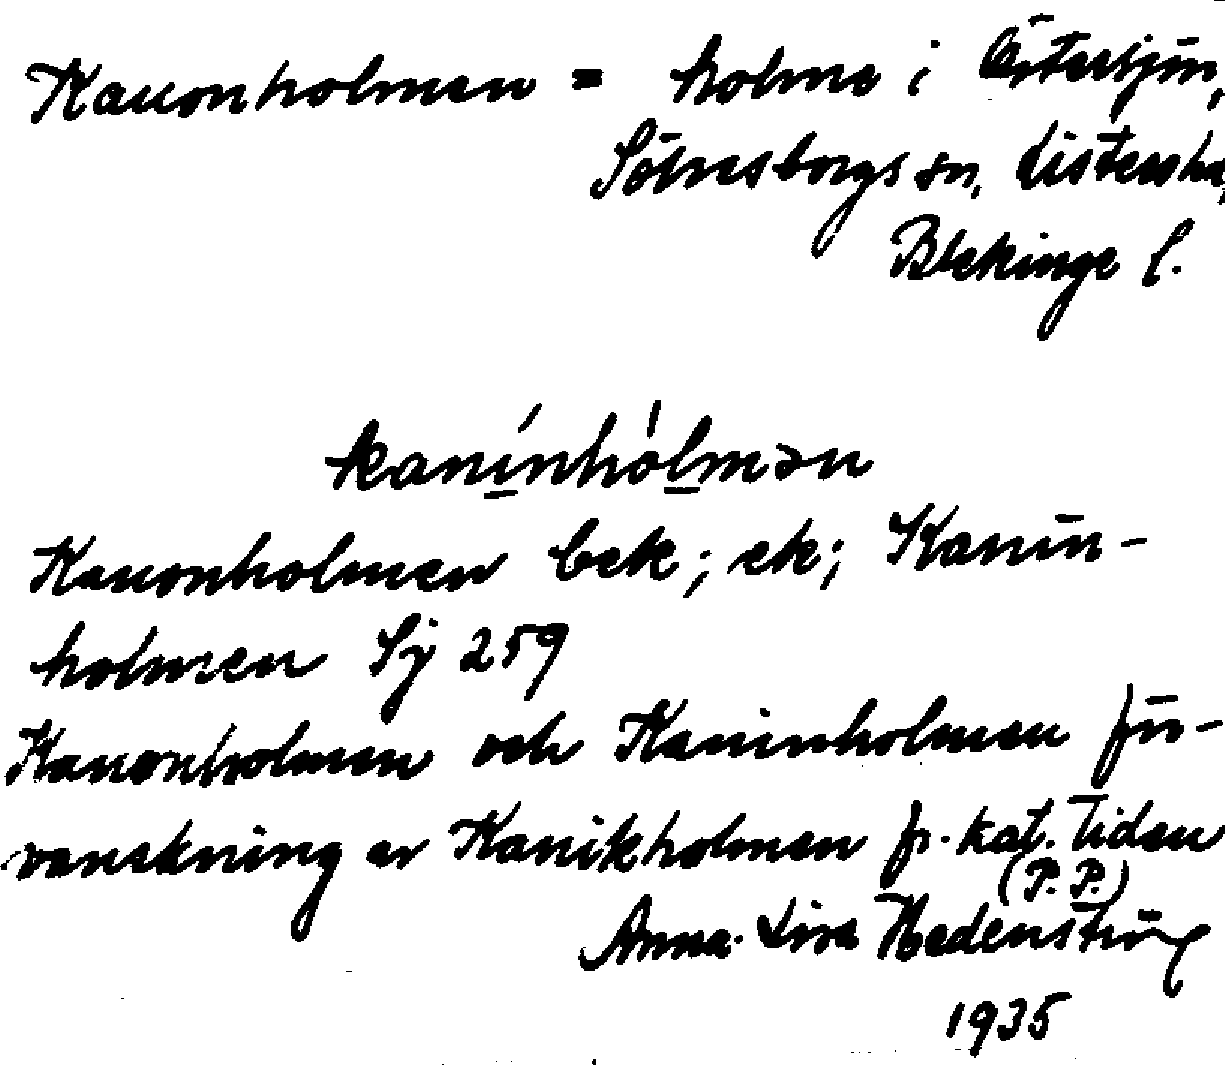 Kanonholmen = holme i Östersjön,
Sölvesborgs sn, Listers hd,
Blekinge l.
kanínhólmən
Kanonholmen bek; ek; Kanin-
holmen Sj 259
Kanonholmen och Kaninholmen för-
vanskning av Kanikholmen fr. kat. tiden
(P. P.)
Anna-Lisa Hedenström
1935